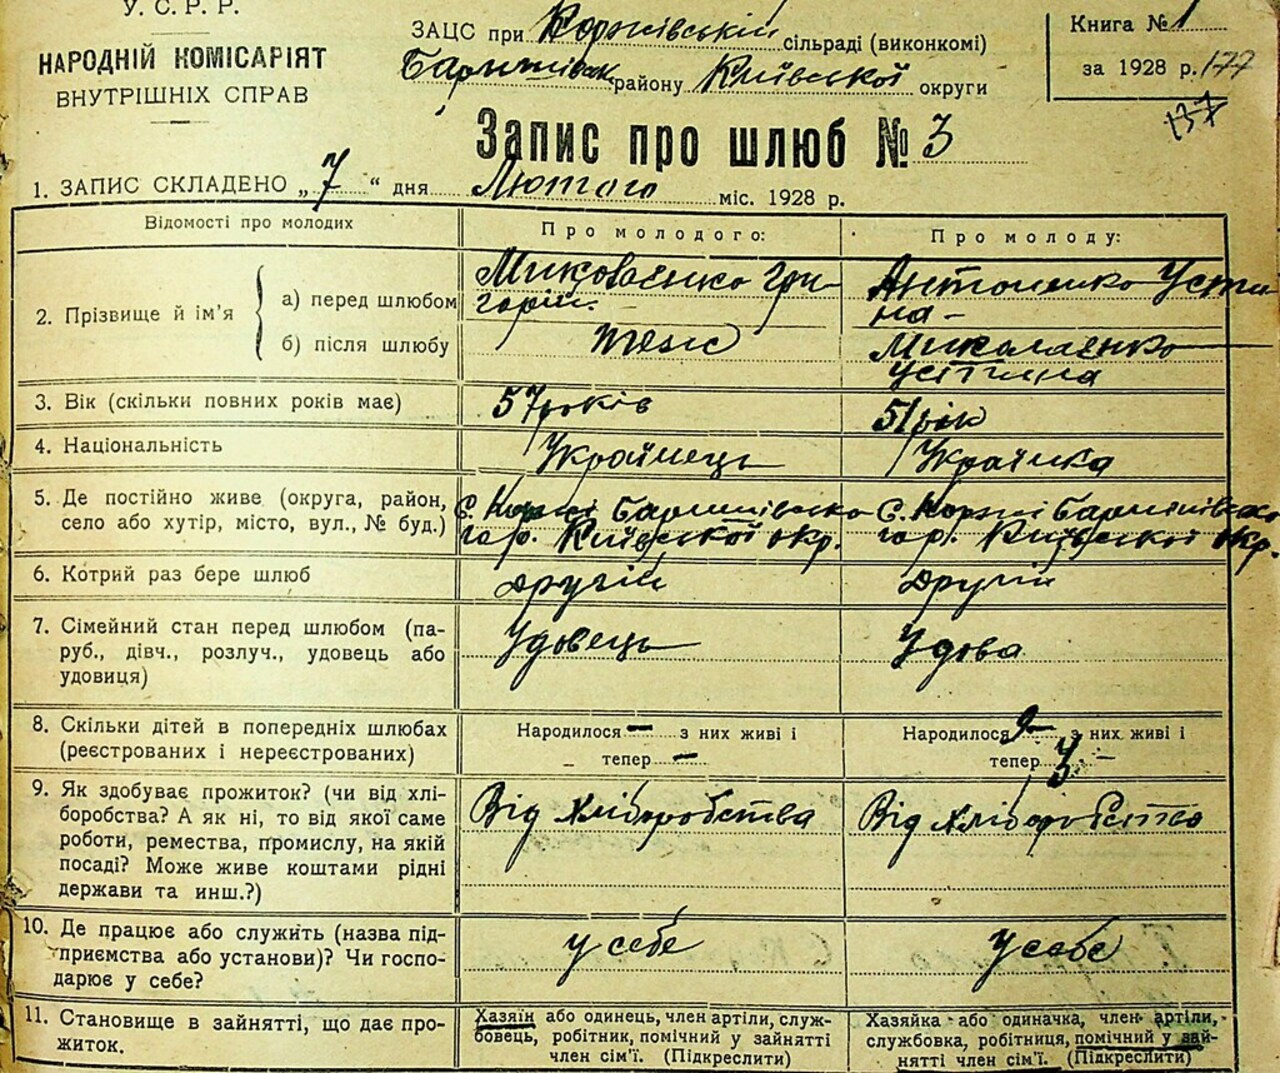 У. С. Р. Р.
НАРОДНІЙ КОМІСАРІЯТ
ВНУТРІШНІХ СПРАВ
ЗАЦС при Коржівській сільраді (виконкомі)
району Київської округи
Книга № 1
за 1928 р. 177
137
Запис про шлюб № 3
1. ЗАПИС СКЛАДЕНО „ 7 “ дня Лютого міс. 1928 р.
Відомості про молодих
Про молодого:
Про молоду:
2. Прізвище й ім'я
а) перед шлюбом
Миколаєнко Гри-
горій.
Антоненко Усти-
на -
б) після шлюбу
теж
Миколаєнко
Устина
3. Вік (скільки повних років має)
57 років
51 рік
4. Національність
Українець
Українка
5. Де постійно живе (округа, район,
село або хутір, місто, вул., № буд.)
с. Коржі Баришівсько
го р. Київської окр.
с. Коржі Баришівсько
го р. Київської окр.
6. Котрий раз бере шлюб
другій
другій
7. Сімейний стан перед шлюбом (па-
руб., дівч., розлуч., удовець або
удовиця)
Удовець
Удова
8. Скільки дітей в попередніх шлюбах
(реєстрованих і нереєстрованих)
Народилося — з них живі і
тепер —
Народилося з них живі і
тепер 3 -
9. Як здобуває прожиток? (чи від хлі-
боробства? А як ні, то від якої саме
роботи, ремества, промислу, на якій
посаді? Може живе коштами рідні
держави та инш.?)
Від хліборобства
Від хліборобства
10. Де працює або служить (назва під-
приємства або установи)? Чи госпо-
дарює у себе?
у себе
у себе
11. Становище в зайнятті, що дає про-
житок.
Хазяїн або одинець, член артіли, служ-
бовець, робітник, помічний у зайнятті
член сім'ї. (Підкреслити)
Хазяйка або одиначка, член артіли,
службовка, робітниця, помічний у зай-
нятті член сім'ї. (Підкреслити)